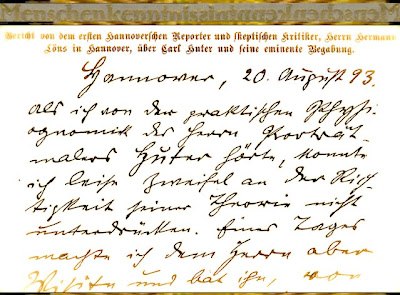 Bericht von dem ersten Hannoverschen Reporter und skeptischen Kritiker, Herrn Hermann
Löns in Hannover, über Carl Huter und seine eminente Begabung.
Hannover, 20. August 93.
Als ich von der praktischen Physi-
ognomik des Herrn Porträt-
malers Huter hörte, konnte
ich leise Zweifel an der Rich-
tigkeit seiner Theorie nicht
unterdrücken. Eines Tages
machte ich dem Herrn aber
Visite und bat ihn, von